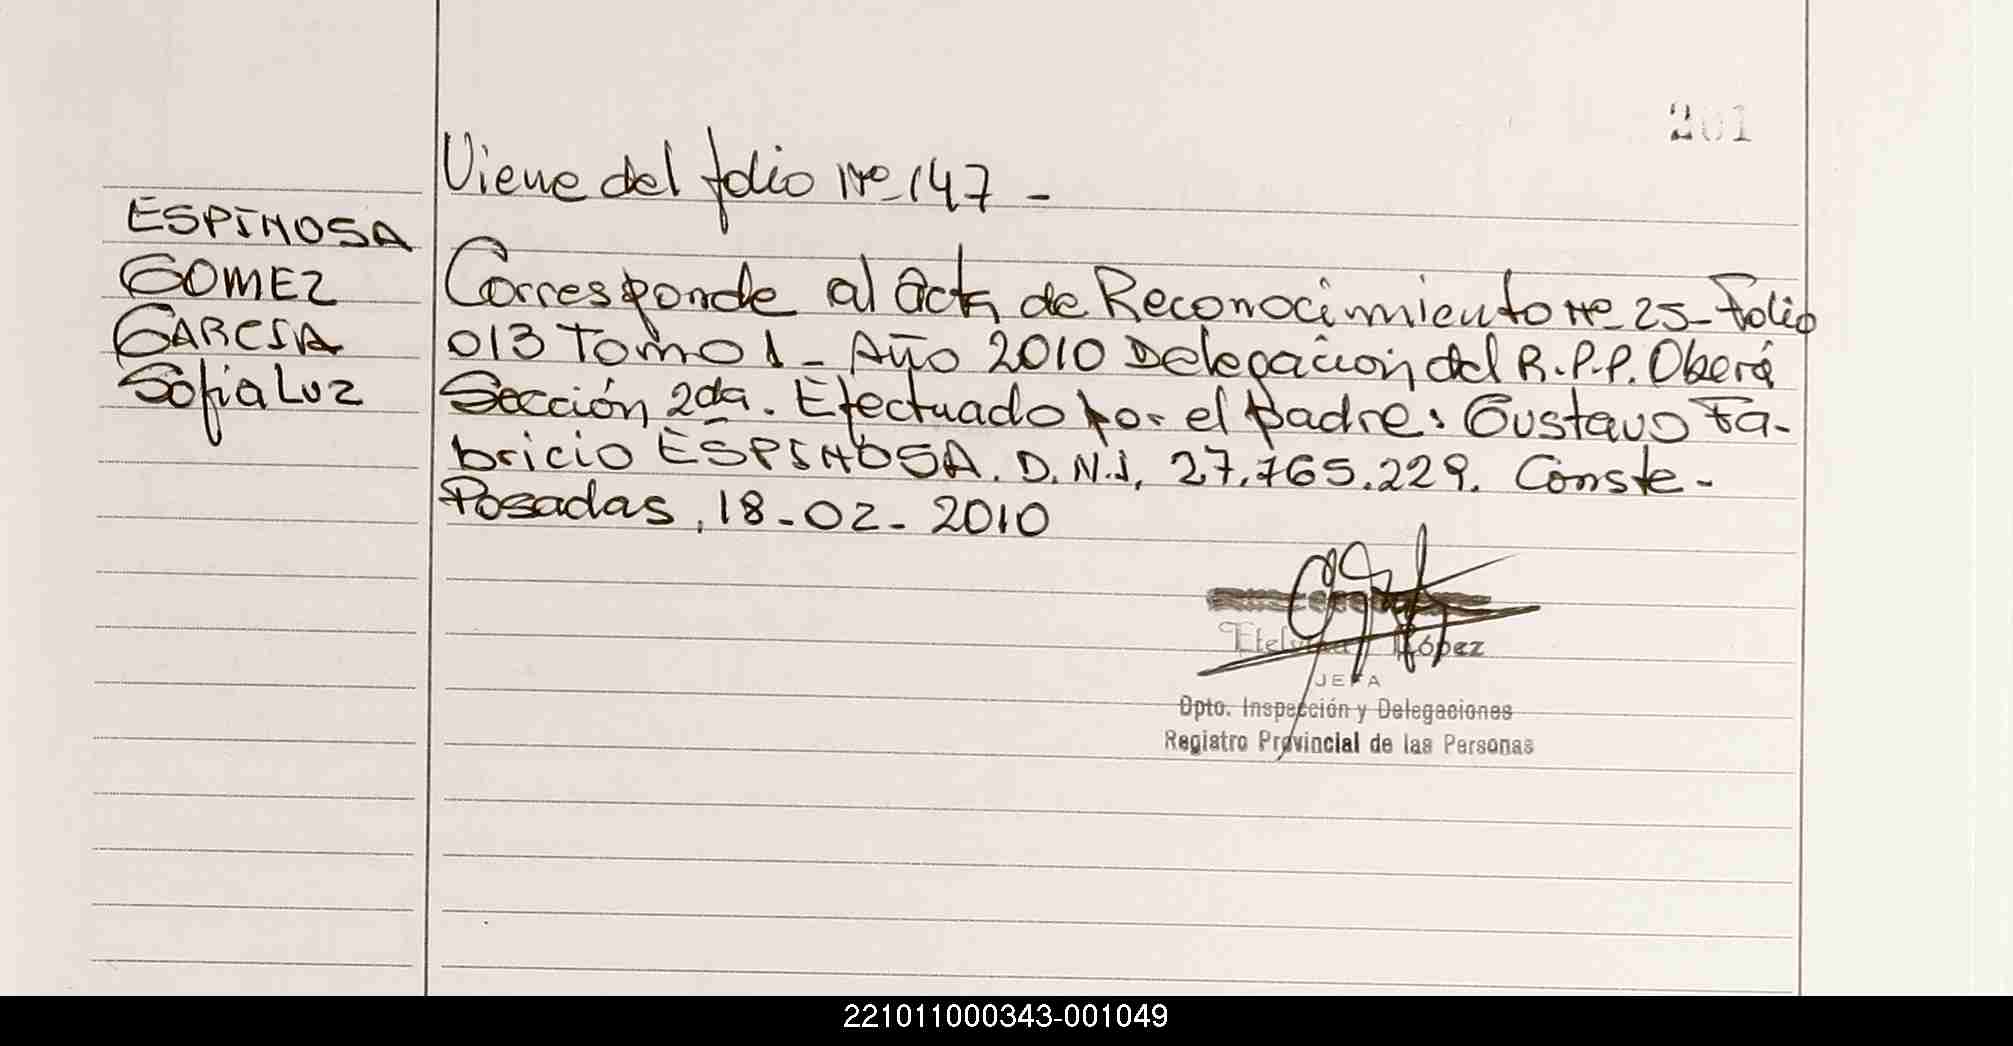 201
Viene del folio Nº 147 -
ESPINOSA
GOMEZ
GARCIA
Sofia Luz
Corresponde al acta de Reconocimiento Nº 25 - Folio
013 Tomo 1 - Año 2010 Delegación del R.P.P. Oberá
Sección 2da. Efectuado por el padre: Gustavo Fa-
bricio ESPINOSA. D.N.I. 27.765.229. Conste-
Posadas, 18-02-2010
Etelvina López
JEFA
Dpto. Inspección y Delegaciones
Registro Provincial de las Personas
221011000343-001049